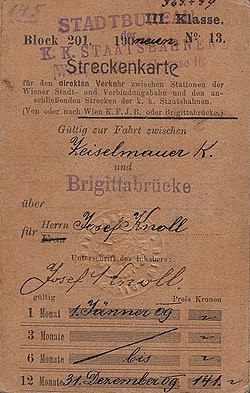 145
363490
STADTBUREAU
III Klasse.
Block 201. 190neun № 13.
K. K. STAATSBAHNEN
Streckenkarte
für den direkten Verkehr zwischen Stationen der
Wiener Stadt- und Verbindungsbahn und den an-
schließenden Strecken der k. k. Staatsbahnen
(Von oder nach Wien K. F. J. B. oder Brigittabrücke.)
Gültig zur Fahrt zwischen
Zeiselmauer K.
und
Brigittabrücke
über
für Herrn Josef Knoll
Frau
Unterschrift des Inhabers:
Josef Knoll.
gültig Preis Kronen
1 Monat 1. Jänner 09
3 Monate
6 „ bis
12 Monate 31. Dezember 09. 141.